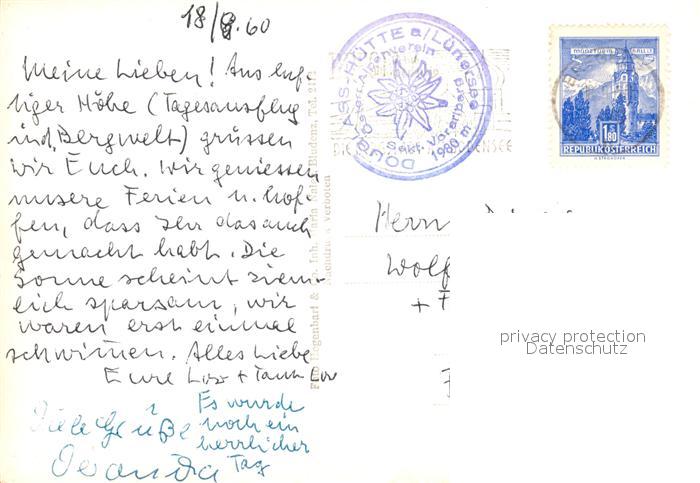 18/8.60
Meine Lieben! Aus luf-
tiger Höhe (Tagesausflug
in d. Bergwelt) grüssen
wir Euch. Wir geniessen
unsere Ferien u. hof-
fen, dass Ihr das auch
gemacht habt. Die
Sonne scheint ziem-
lich sparsam, wir
waren erst einmal
schwimmen. Alles Liebe
Eure + Tante
Viele Grüße
Es wurde
noch ein
herrlicher
Tag
DOUGLASS-HÜTTE a/Lünersee
Österr. Alpenverein
Sekt. Vorarlberg
1980 m.
MÜNZTURM HALL I. T.
1.80
REPUBLIK ÖSTERREICH
Foto Hegenbart & Inh. Maria Bludenz, Tel.
Nachdruck verboten
Herrn
Wolf
+
privacy protection
Datenschutz